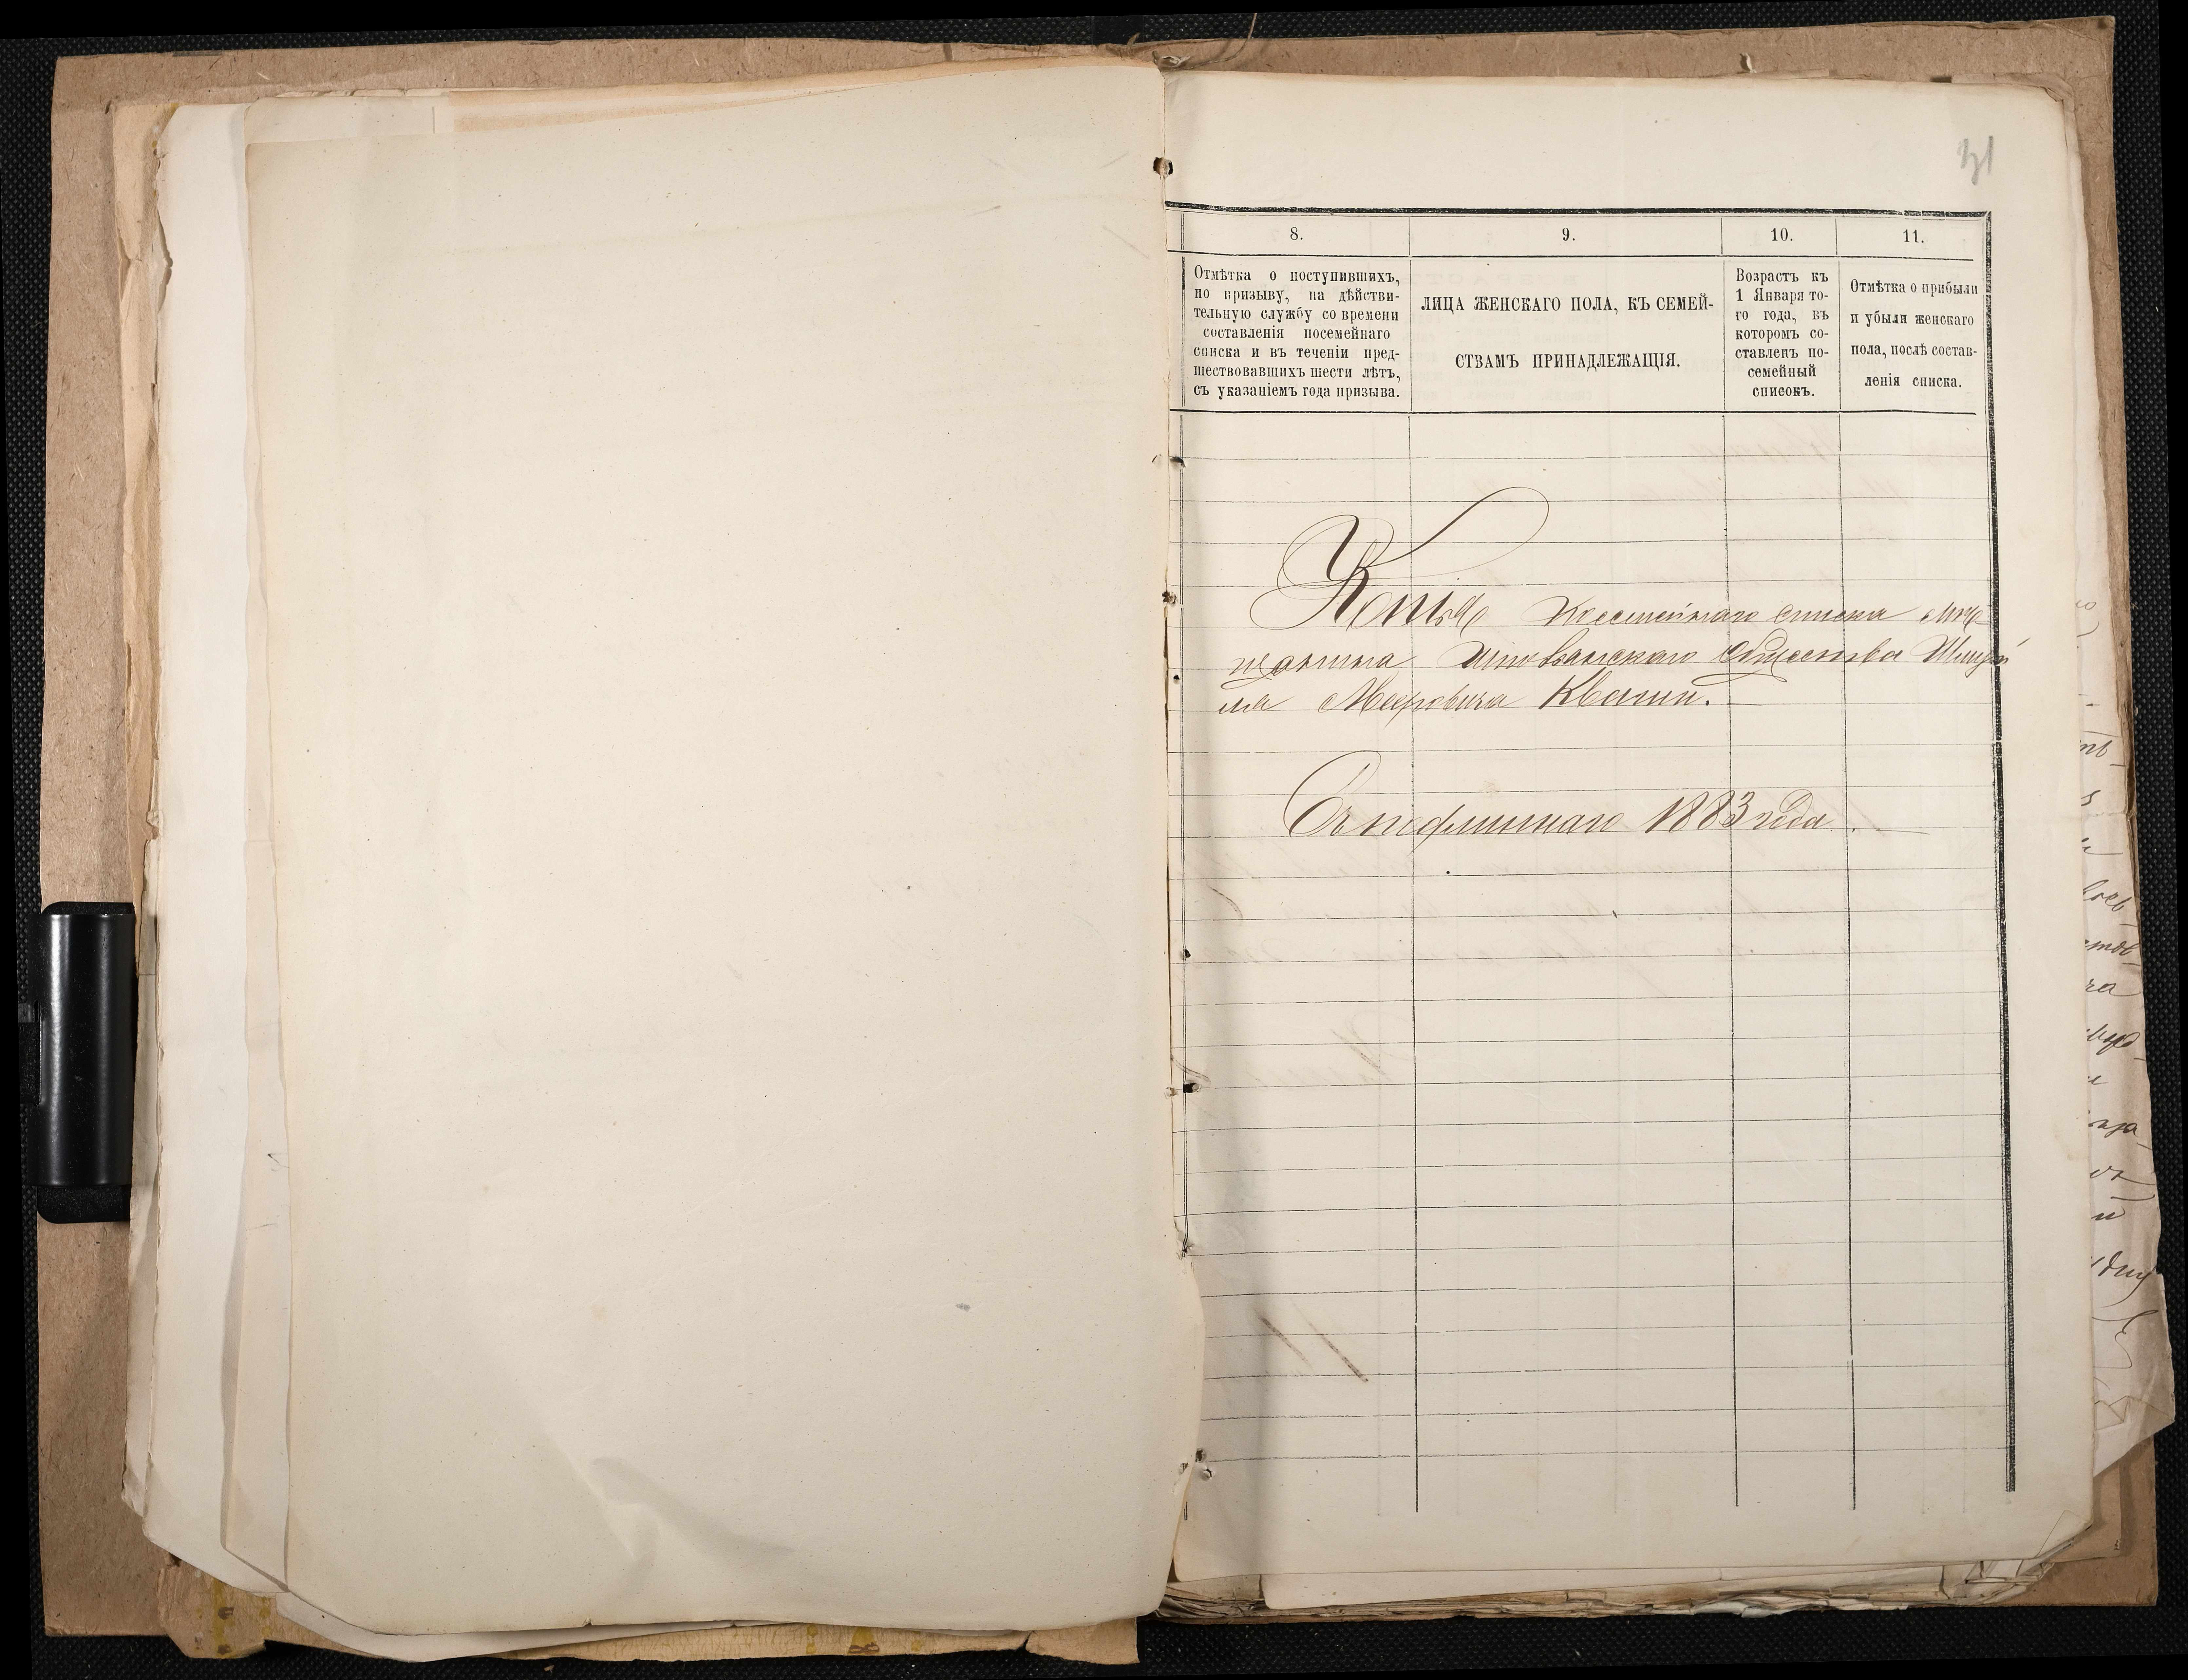 31
8.
Отмѣтка о поступившихъ,
по призыву, на дѣйстви-
тельную службу со времени
составленія посемейнаго
списка и въ теченіи пред-
шествовавшихъ шести лѣтъ,
съ указаніемъ года призыва.
9.
ЛИЦА ЖЕНСКАГО ПОЛА, КЪ СЕМЕЙ-
СТВАМЪ ПРИНАДЛЕЖАЩІЯ.
10.
Возрастъ къ
1 Января то-
го года, въ
которомъ со-
ставленъ по-
семейный
списокъ.
11.
Отмѣтка о прибыли
и убыли женскаго
пола, послѣ состав-
ленія списка.
Копія Посемейнаго списка мѣ-
щанина общества
Мееровича Кваши.
1883 года.